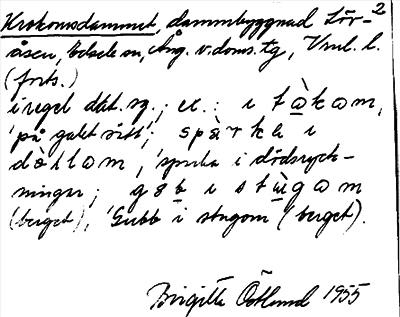 Krokomsdammet, dammbyggnad Lör- 2
åsen, Edsele sn, Ång. v. doms. tg, Vml. l.
(forts.)
i regel dat. sg.; ex.: i tåkom,
'på galet sätt'; spàrka i
døllom, 'sparka i dödsryck-
ningar; gøb i stùgom
(berget), 'Gubb i stugom' (berget).
Birgitta Östlund 1955